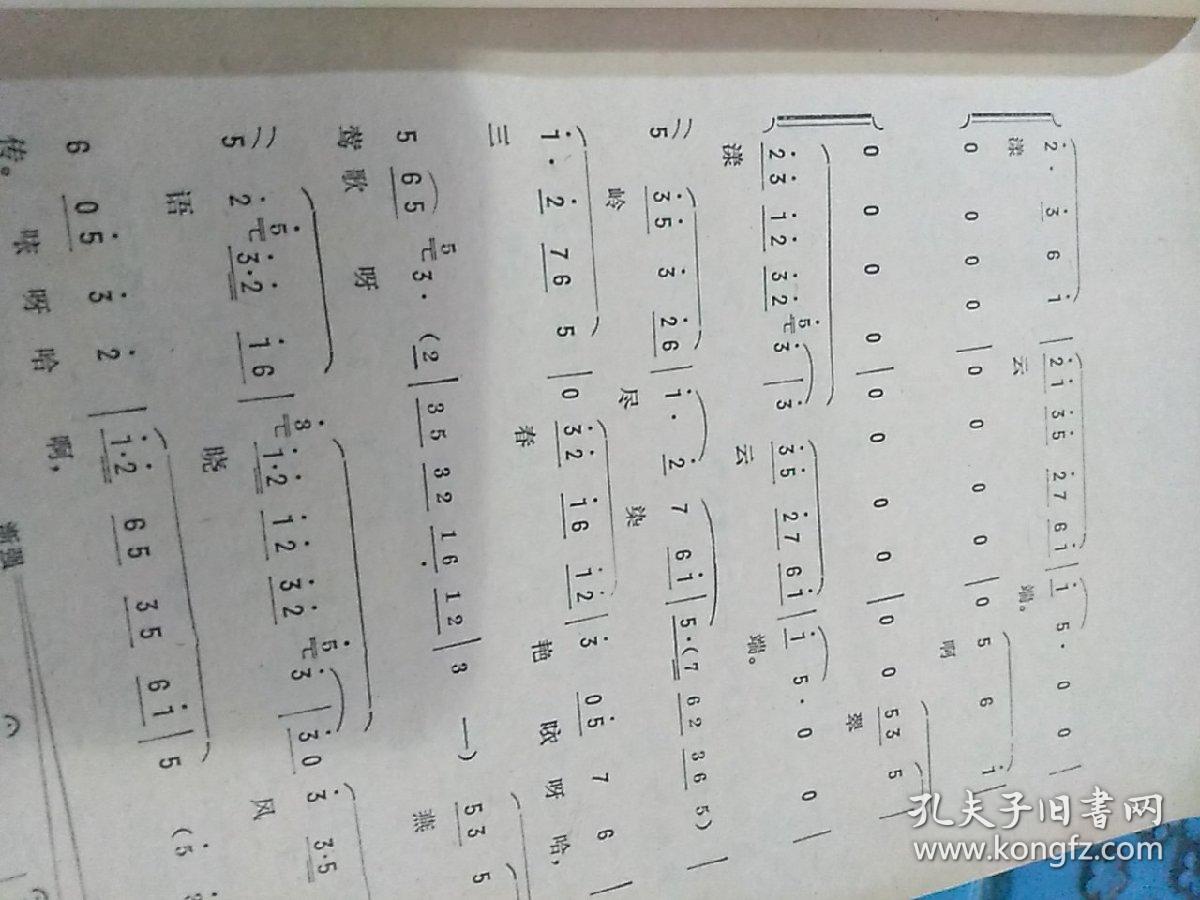 2̇· 3̇ 6 1̇ | 2̇1̇ 3̇5̇ 2̇7 61̇ | 1̇ 5· 0 0 |
漾 云 端。
0 0 0 0 | 0 0 0 0 | 0 5 6 1̇ |
啊
0 0 0 0 | 0 0 0 0 | 0 0 53 5 |
翠
2̇3̇ 1̇2̇ 3̇2̇ 5̇ 3̇ | 3̇ 3̇5̇ 2̇7 61̇ | 1̇ 5· 0 0 |
漾 云 端。
5 3̇5̇ 3̇ 2̇6 | 1̇· 2̇ 7 61̇ | 5·(7 62 36 5) |
岭 尽 染
1̇· 2̇ 76 5 | 0 3̇2̇ 1̇6 1̇2̇ | 3̇ 05̇ 7 6 |
三 春 艳 咳 呀 哈,
5 65 5 3· (2 | 35 32 16 12 | 3 —) 53 5
莺 歌 呀 燕
5 2̇ 5̇ 3̇·2̇ 1̇6 | 3̇ 1̇·2̇ 1̇2̇ 3̇2̇ 5̇ 3̇ | 3̇0 3̇ 3̇·5
语 晓 风
6 05̇ 3̇ 2̇ | 1̇·2̇ 65 35 61̇ | 5 (5̇
传。 咳 呀 哈 啊,
渐强
孔夫子旧书网
www.kongfz.com